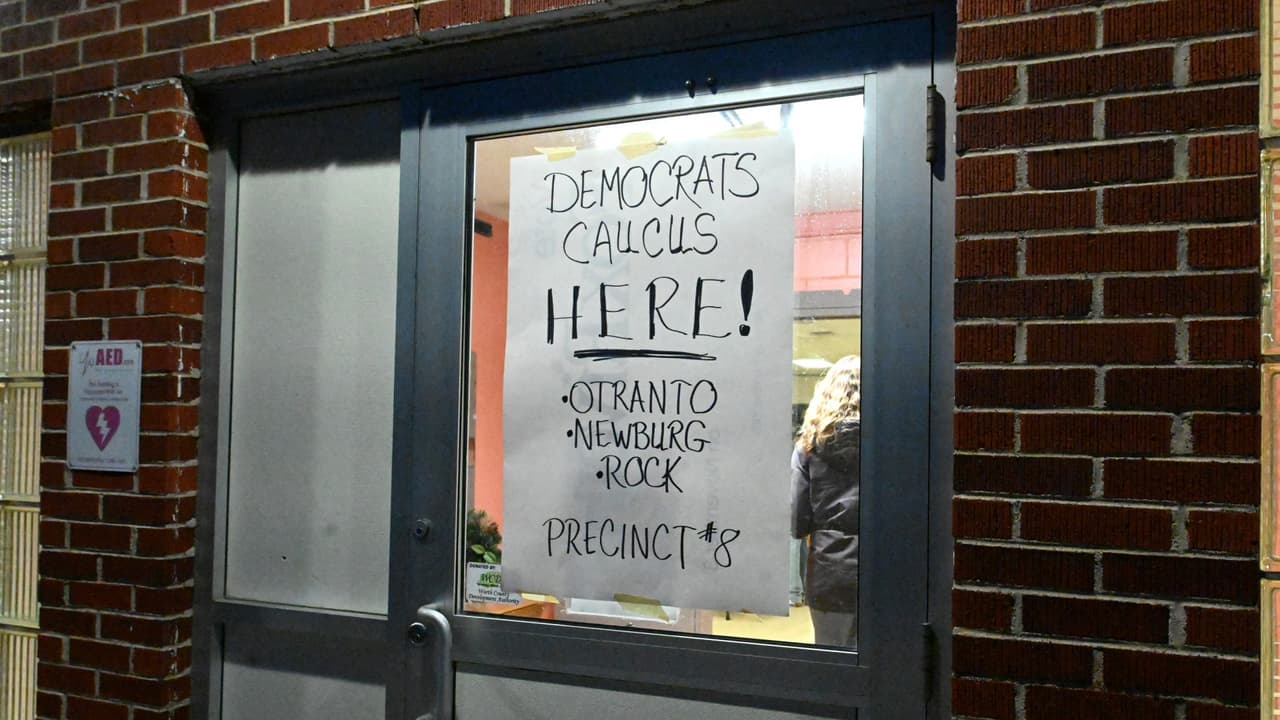 DEMOCRATS
CAUCUS
HERE!
•OTRANTO
•NEWBURG
•ROCK
PRECINCT #8
AED
DONATED BY:
Worth County
Development Authority